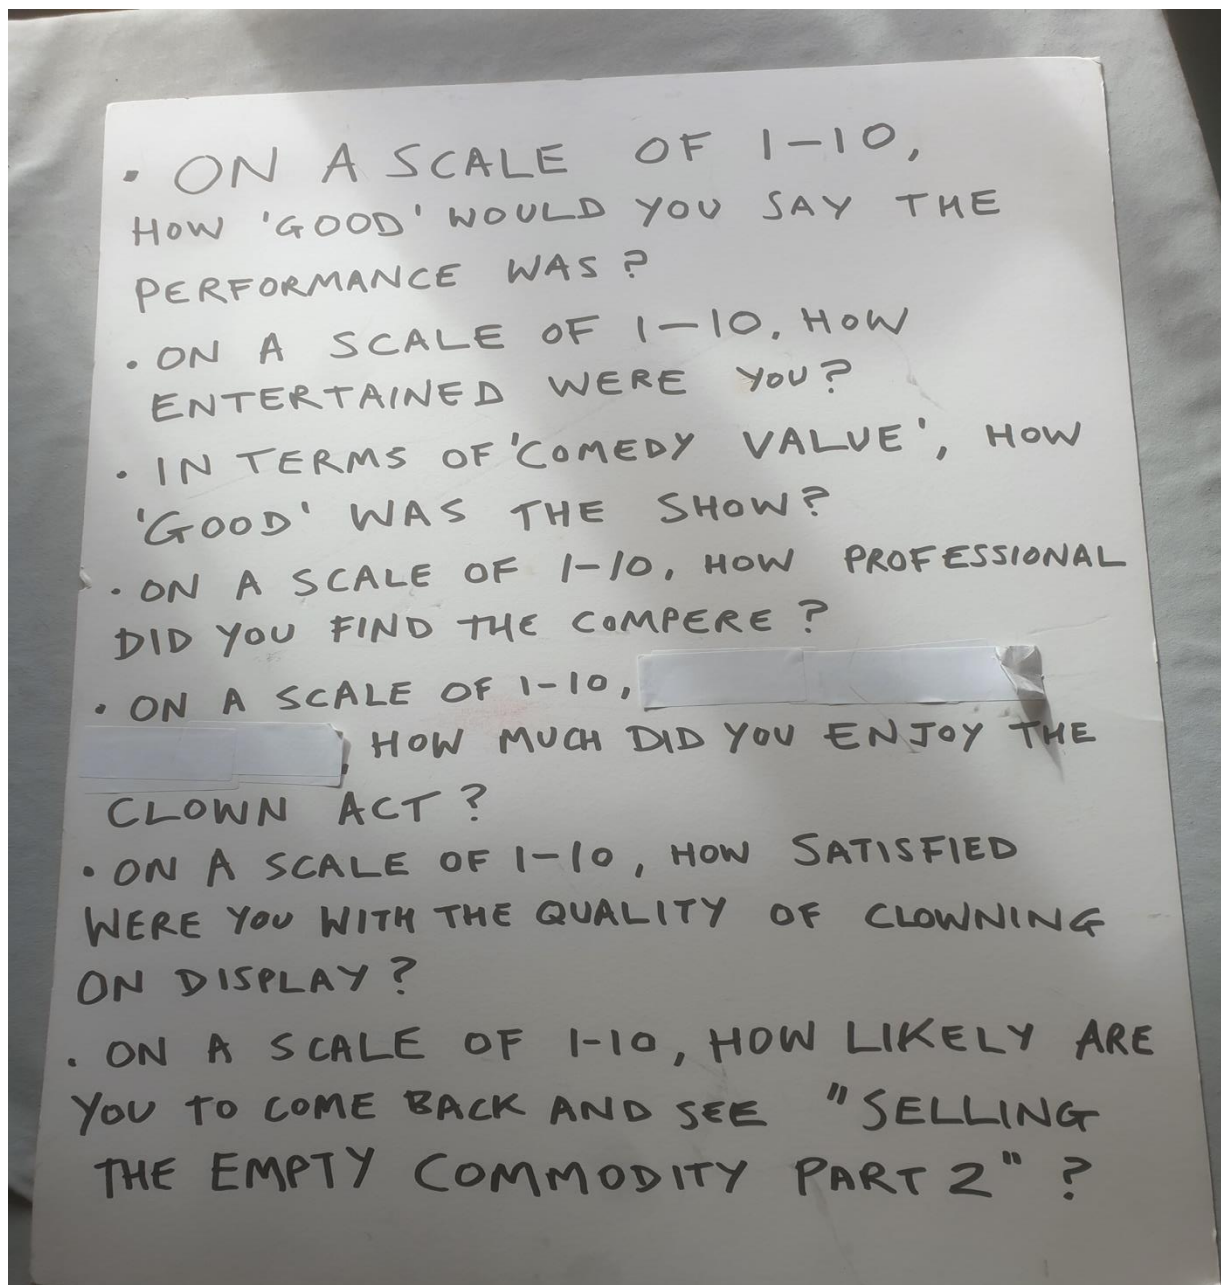 • ON A SCALE OF 1-10,
HOW 'GOOD' WOULD YOU SAY THE
PERFORMANCE WAS?
• ON A SCALE OF 1-10, HOW
ENTERTAINED WERE YOU?
• IN TERMS OF 'COMEDY VALUE', HOW
'GOOD' WAS THE SHOW?
• ON A SCALE OF 1-10, HOW PROFESSIONAL
DID YOU FIND THE COMPERE?
• ON A SCALE OF 1-10,
, HOW MUCH DID YOU ENJOY THE
CLOWN ACT?
• ON A SCALE OF 1-10, HOW SATISFIED
WERE YOU WITH THE QUALITY OF CLOWNING
ON DISPLAY?
• ON A SCALE OF 1-10, HOW LIKELY ARE
YOU TO COME BACK AND SEE "SELLING
THE EMPTY COMMODITY PART 2"?